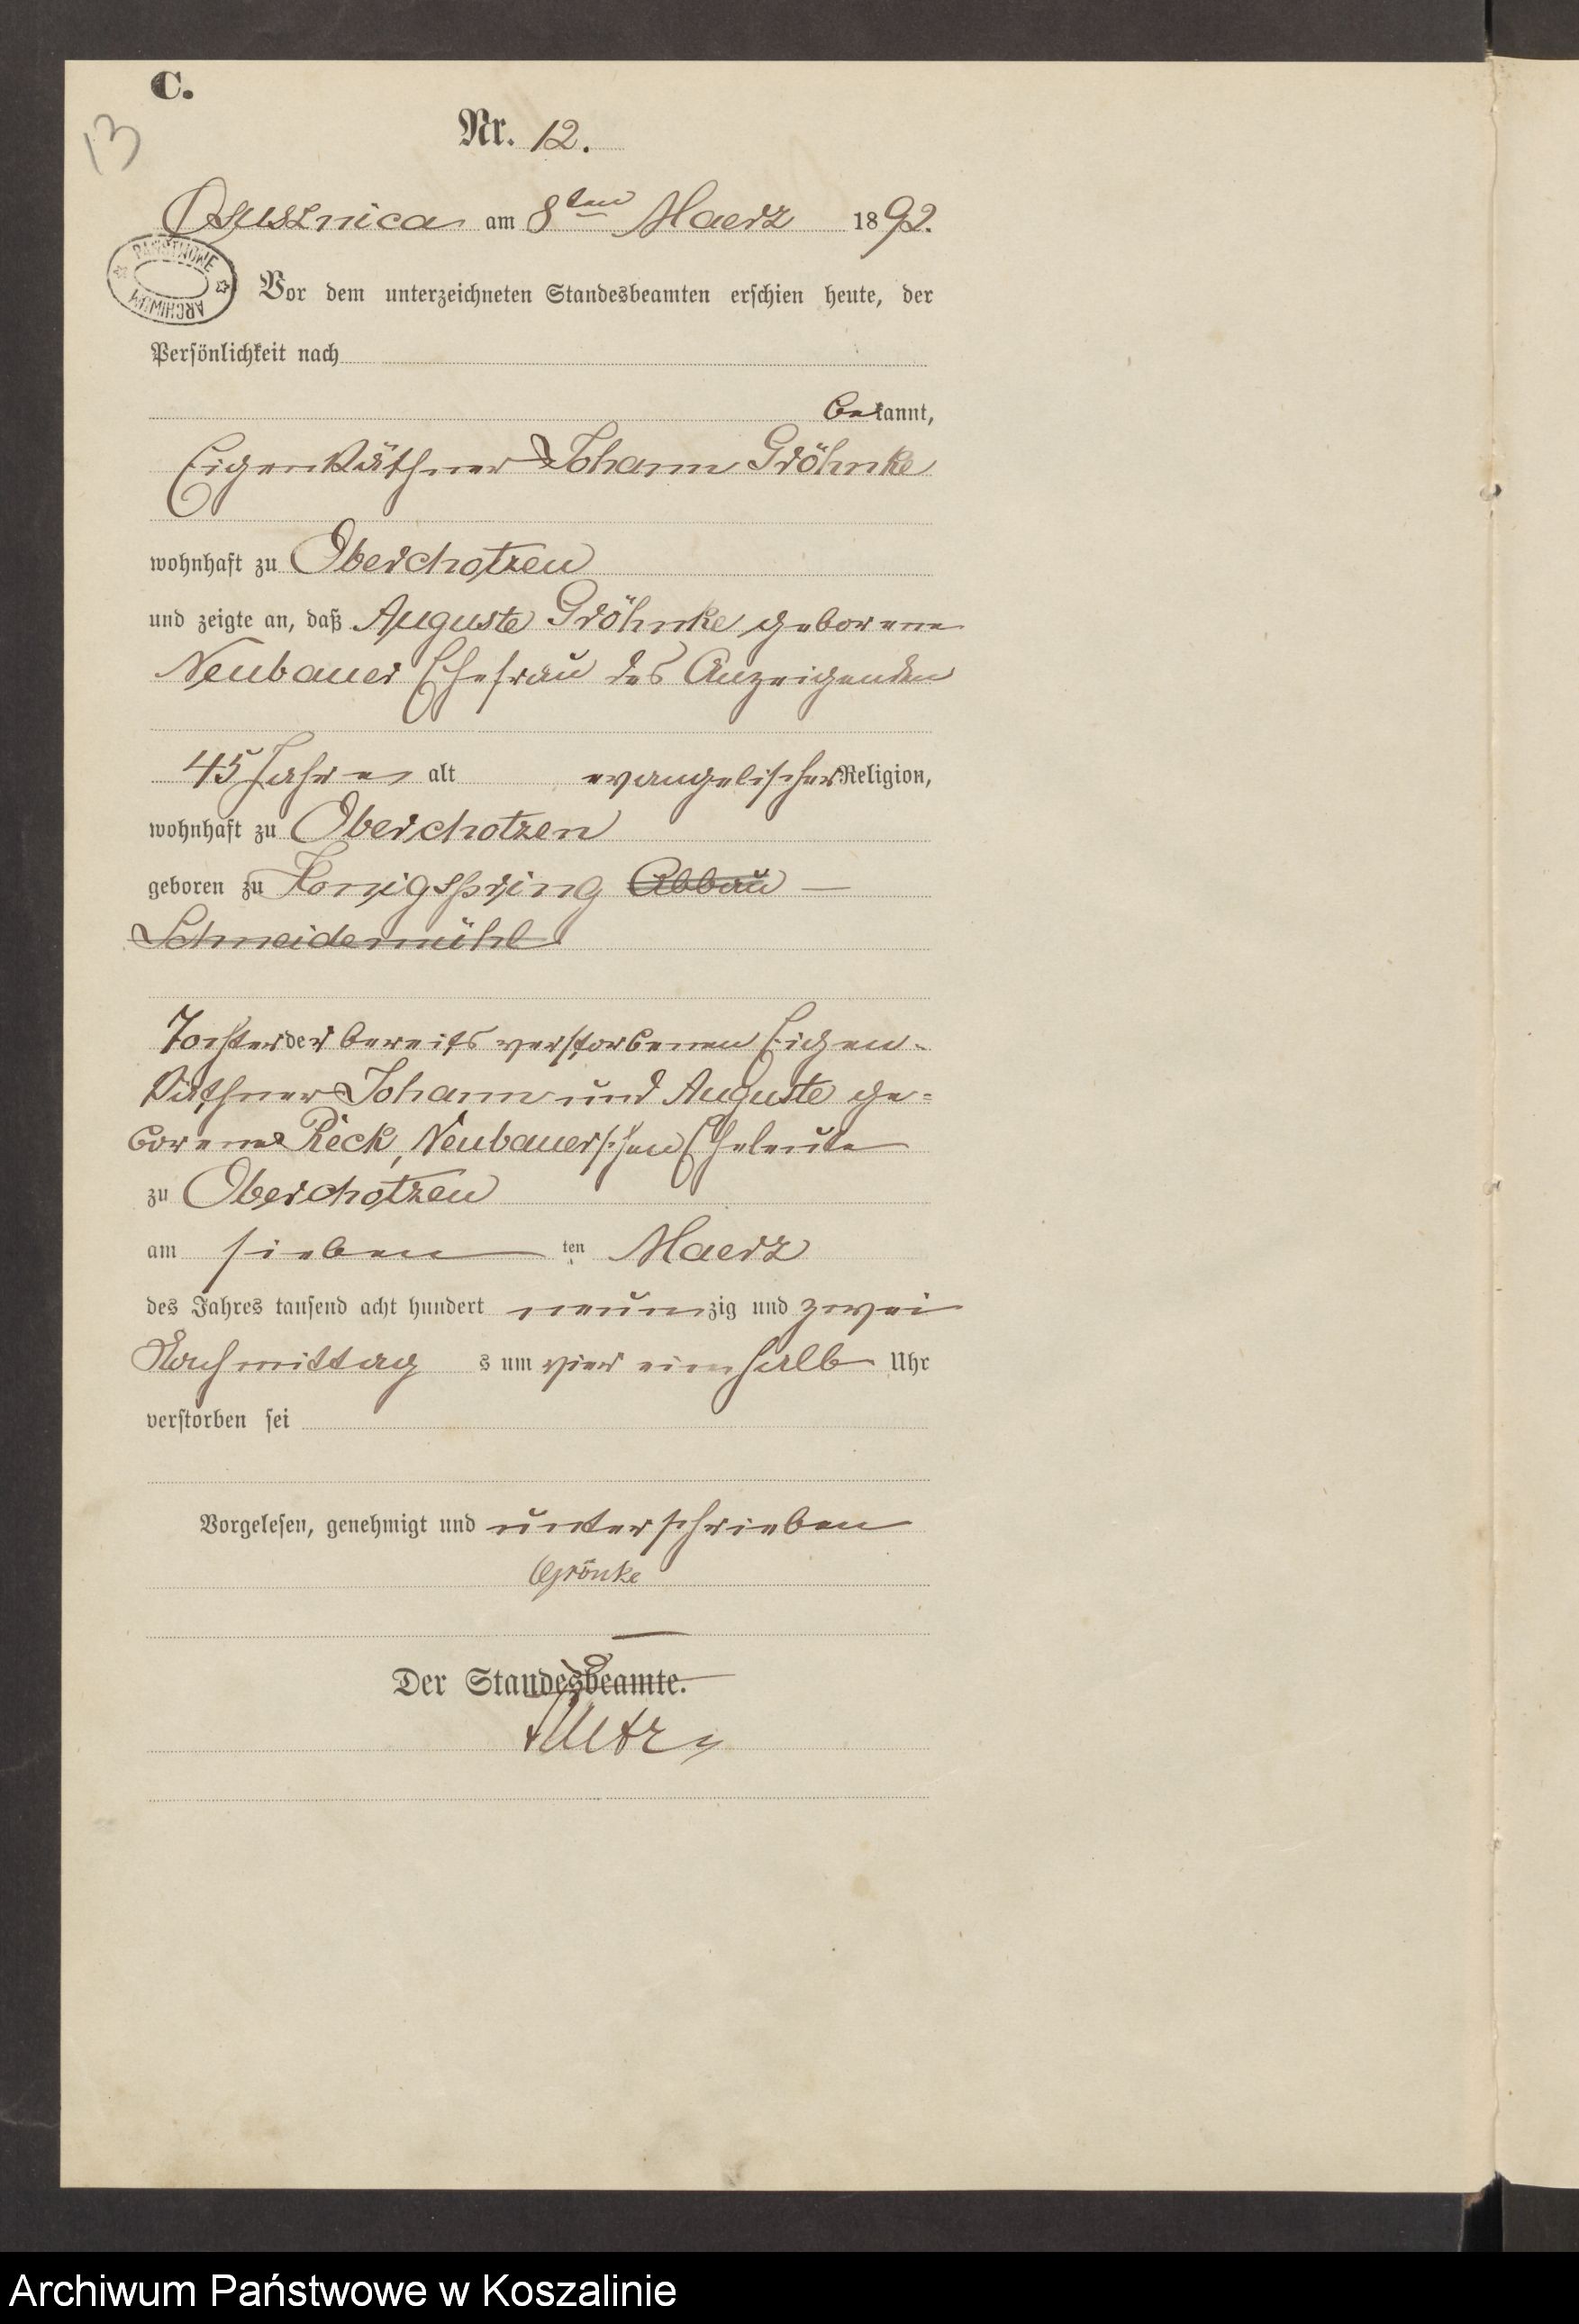 C.
13
Nr. 12.
Osusznica am 8ten Maerz 1892.
PAŃSTWOWE ARCHIWUM
Vor dem unterzeichneten Standesbeamten erschien heute, der
Persönlichkeit nach
bekannt,
Eigenkäthner Johann Gröhnke
wohnhaft zu Oberchotzen
und zeigte an, daß Auguste Gröhnke geborene
Neubauer Ehefrau des Anzeigenden
45 Jahre alt evangelischer Religion,
wohnhaft zu Oberchotzen
geboren zu Abbau
Schneidemühl
Tochter der bereits verstorbenen Eigen-
käthner Johann und Auguste ge=
borene Reck, Neubauerschen Eheleute
zu Oberchotzen
am sieben ten Maerz
des Jahres tausend acht hundert neunzig und zwei
Nachmittag s um vier einhalb Uhr
verstorben sei
Vorgelesen, genehmigt und unterschrieben
Grönke
Der Standesbeamte.
Archiwum Państwowe w Koszalinie